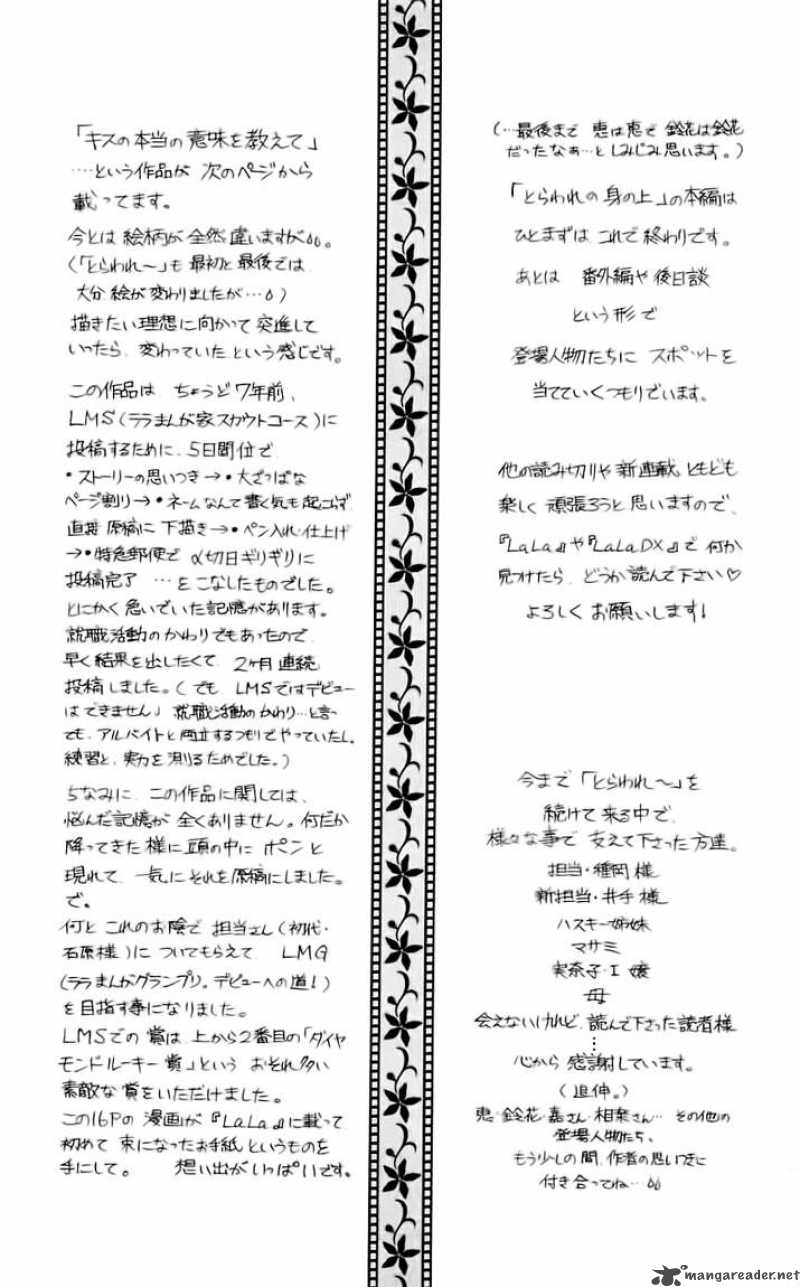 (…最後まで 恵は恵で 鈴花は鈴花
だったなぁ…と しみじみ思います。)
「とらわれの身の上」の本編は
ひとまずは これで終わりです。
あとは 番外編や後日談
という形で
登場人物たちに スポットを
当てていくつもりでいます。
他の読み切りや新連載ともども
楽しく頑張ろうと思いますので、
『LaLa』や『LaLaDX』で何か
見つけたら、どうか読んで下さい♡
よろしくお願いします!
今まで「とらわれ〜」を
続けて来る中で、
様々な事で支えて下さった方達。
担当・種岡様
新担当・井手様
ハスキー姉妹
マサミ
実奈子・I 嬢
母
会えないけれど、読んで下さった読者様
…
心から感謝しています。
(追伸。)
恵・鈴花・嘉さん・相楽さん… その他の
登場人物たち、
もう少しの間、作者の思いつきに
付き合ってね…
「キスの本当の意味を教えて」
…という作品が 次のページから
載ってます。
今とは絵柄が全然違いますが。
(「とらわれ〜」も最初と最後では
大分絵が変わりましたが…)
描きたい理想に向かって突進して
いったら、変わっていたという感じです。
この作品は ちょうど7年前、
LMS(ララまんが家スカウトコース)に
投稿するために、5日間位で
・ストーリーの思いつき→・大ざっぱな
ページ割り→・ネームなんて書く気も起こらず
直接原稿に下描き→・ペン入れ・仕上げ
→・特急郵便で〆切日ギリギリに
投稿完了 …をこなしたものでした。
とにかく急いでいた記憶があります。
就職活動のかわりでもあったので
早く結果を出したくて、2ヶ月連続
投稿しました。(でも、LMSではデビュー
はできません」就職活動のかわり…と言っ
ても、アルバイトと両立するつもりでやっていたし、
練習と、実力を測るためでした。)
ちなみに、この作品に関しては、
悩んだ記憶が全くありません。何だか
降ってきた様に頭の中に ポンと
現れて、一気にそれを原稿にしました。
で。
何とこれのお陰で 担当さん(初代・
石原様)についてもらえて LMG
(ララまんがグランプリ。デビューへの道!)
を目指す事になりました。
LMSでの賞は、上から2番目の「ダイヤ
モンドルーキー賞」という おそれ多い
素敵な賞をいただけました。
この16Pの漫画が『LaLa』に載って
初めて束になったお手紙というものを
手にして。 想い出がいっぱいです。
mangareader.net